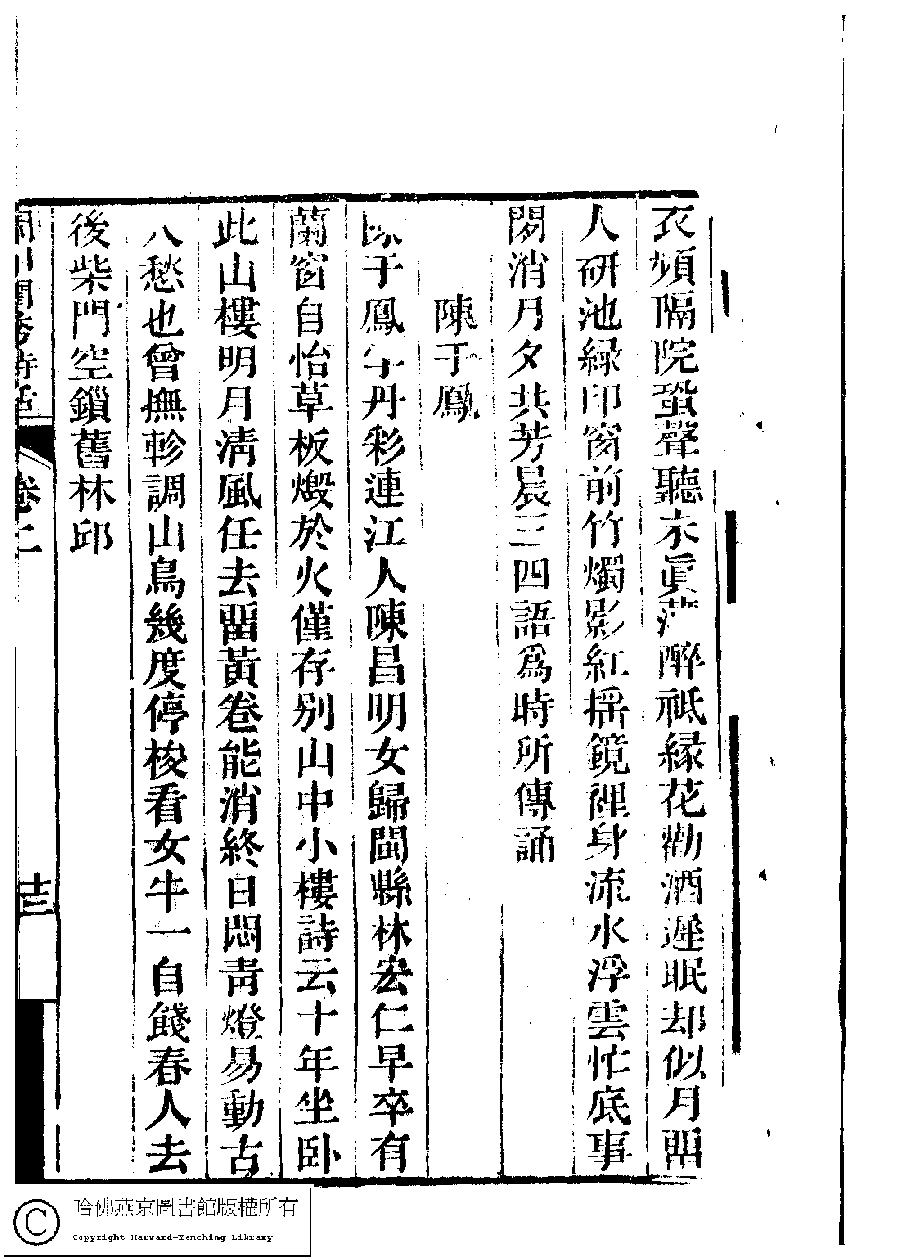 衣頻隔院蛩聲聽未眞薄醉祗緣花勸酒遲眠却似月畱
人研池綠印窗前竹燭影紅搖鏡裡身流水浮雲忙底事
閑消月夕共芳晨三四語爲時所傳誦
陳于鳳
陳于鳳字丹彩連江人陳昌明女歸閩縣林宏仁早卒有
蘭窗自怡草板燬於火僅存别山中小樓詩云十年坐卧
此山樓明月淸風任去畱黃卷能消終日悶靑燈易動古
人愁也曾撫軫調山鳥幾度停梭看女牛一自餞春人去
後柴門空鎖舊林邱
閩川閨秀詩話
卷二
十三
哈佛燕京圖書館版權所有
Copyright Harvard-Yenching Library